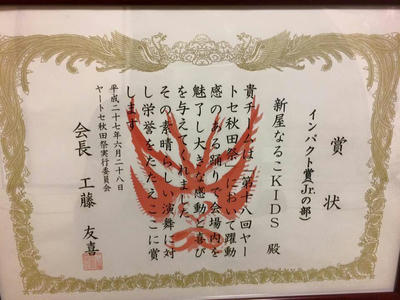 賞状
インパクト賞(Jr.の部)
新屋なるこKIDS 殿
貴チームは「第十八回ヤー
トセ秋田祭」において躍動
感のある踊りで会場内を
魅了し大きな感動と喜び
を与えてくれました
その素晴らしい演舞に対
し栄誉をたたえここに賞
します
平成二十七年六月二十八日
ヤートセ秋田祭実行委員会
会長 工藤友喜